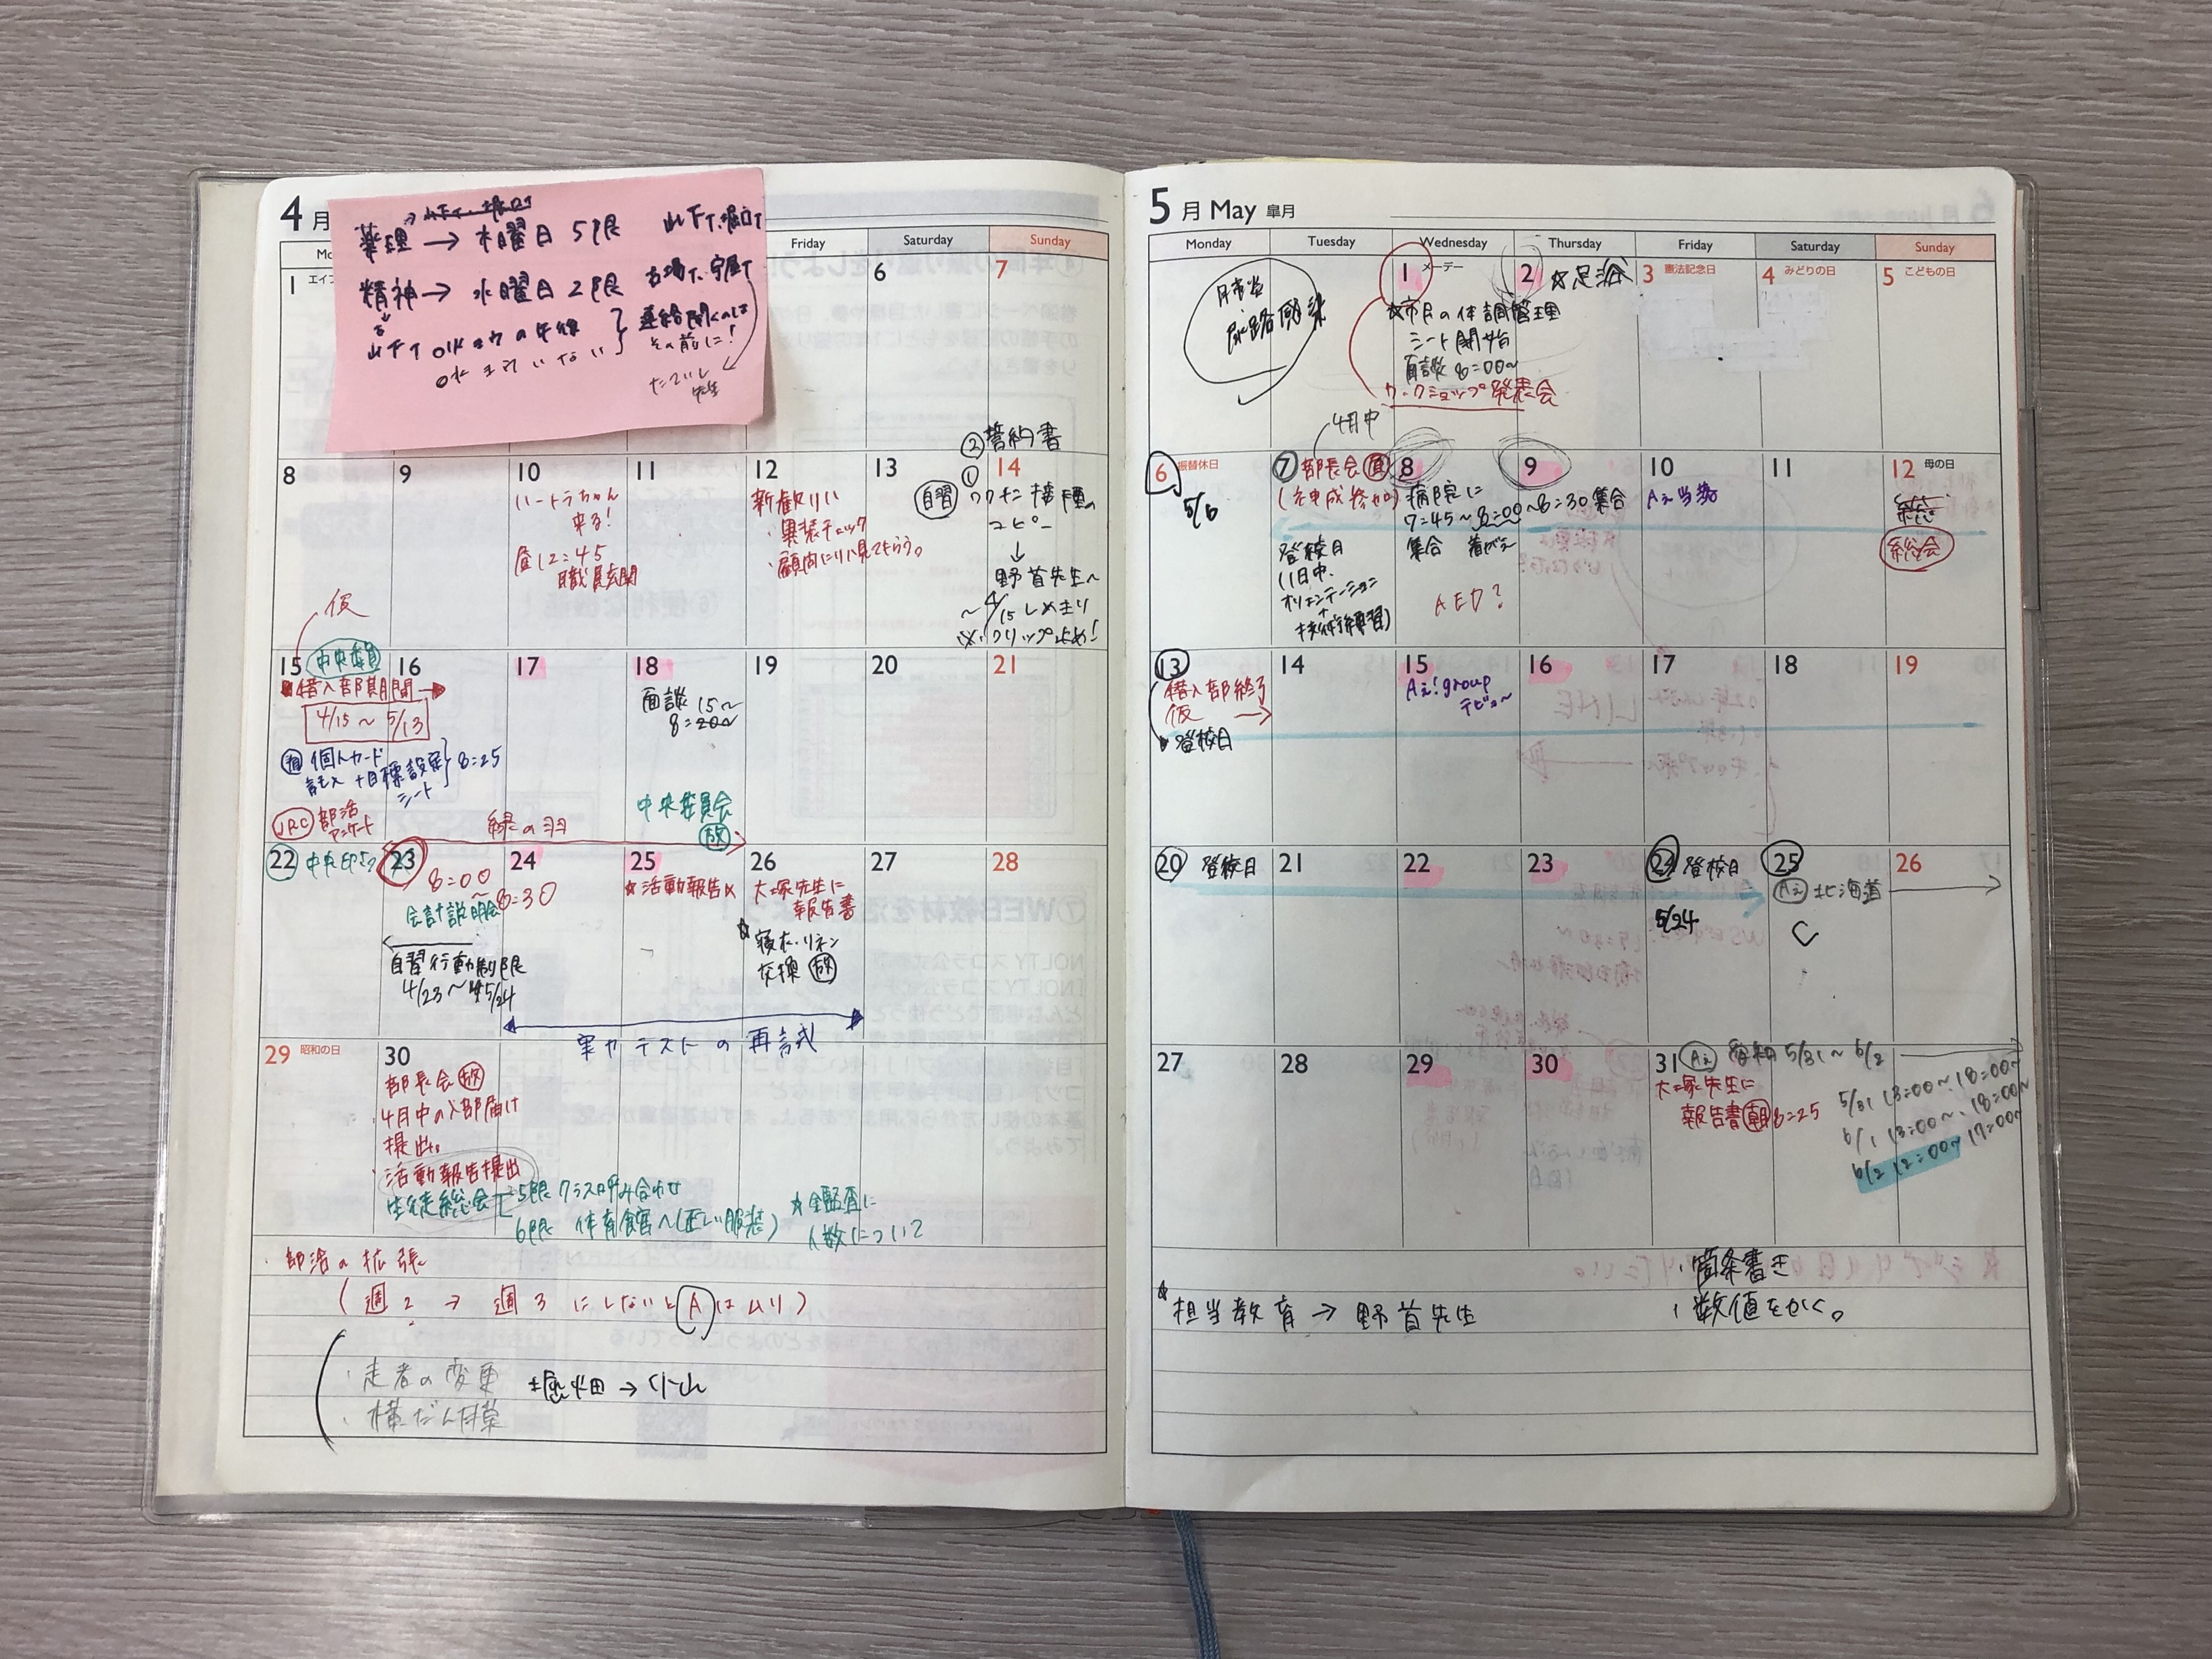 4月
薬理 → 木曜日 5限 山下T、堀口T
精神 → 水曜日 2限
山下T OKまでの午後
OKまでいない
連絡聞くのは
その前に!
たていし
先生
Friday
Saturday
Sunday
1
6
7
8
9
10
ハートラちゃん
来る!
昼12:45
職員玄関
11
12
新歓リハ
・服装チェック
・顧問にリハ見てもらう。
13
②誓約書
14
自習
①ワクチン接種の
コピー
↓
野首先生へ
~4/15 しめきり
※クリップ止め!
仮
15
中央委員
借入部期間
4/15~5/13
個人カード
記入+目標設定
シート
8:25
JRC
部活
アンケート
16
17
18
面談 15~
8:20~
中央委員会
放
19
20
21
緑の羽
22
23
8:00
~8:30
会計説明会
自習行動制限
4/23~5/24
24
25
☆活動報告〆
26
大塚先生に
報告書
☆寝衣・リネン
交換 放
27
28
実力テストの再試
29 昭和の日
30
部長会 放
・4月中の入部届け
提出。
・活動報告提出
生徒総会
5限 クラス呼み合わせ
6限 体育館へ(正しい服装)
☆全監査に
人数について
・部活の拡張
(週2→週3にしないとAはムリ)
・走者の変更
・横だん幕
堀畑→小山
5月 May 皐月
Monday
Tuesday
Wednesday
Thursday
Friday
Saturday
Sunday
尿路感染
1 メーデー
☆市民の体調管理
シート開始
面談 8:00~
ワークショップ発表会
2
☆足浴
3 憲法記念日
4 みどりの日
5 こどもの日
4月中
6 振替休日
5/6
7
部長会
登校日
(1日中、
オリエンテーション
+
技術練習)
8
病院に
7:45~8:00
集合 着がえ
AED?
9
~8:30集合
10
Aぇ当落
11
12 母の日
総会
13
借入部終了
仮
登校日
14
15
Aぇ!group
デビュー
16
17
18
19
20 登校日
21
22
23
24 登校日
5/24
25
Aぇ 北海道
26
27
28
29
30
31
Aぇ 愛知 5/31~6/2
大塚先生に
報告書 朝 8:25
5/31 13:00~、18:00~
6/1 13:00~、18:00~
6/2 12:00~ 17:00~
☆担当教育→野首先生
・箇条書き
・数値をかく。